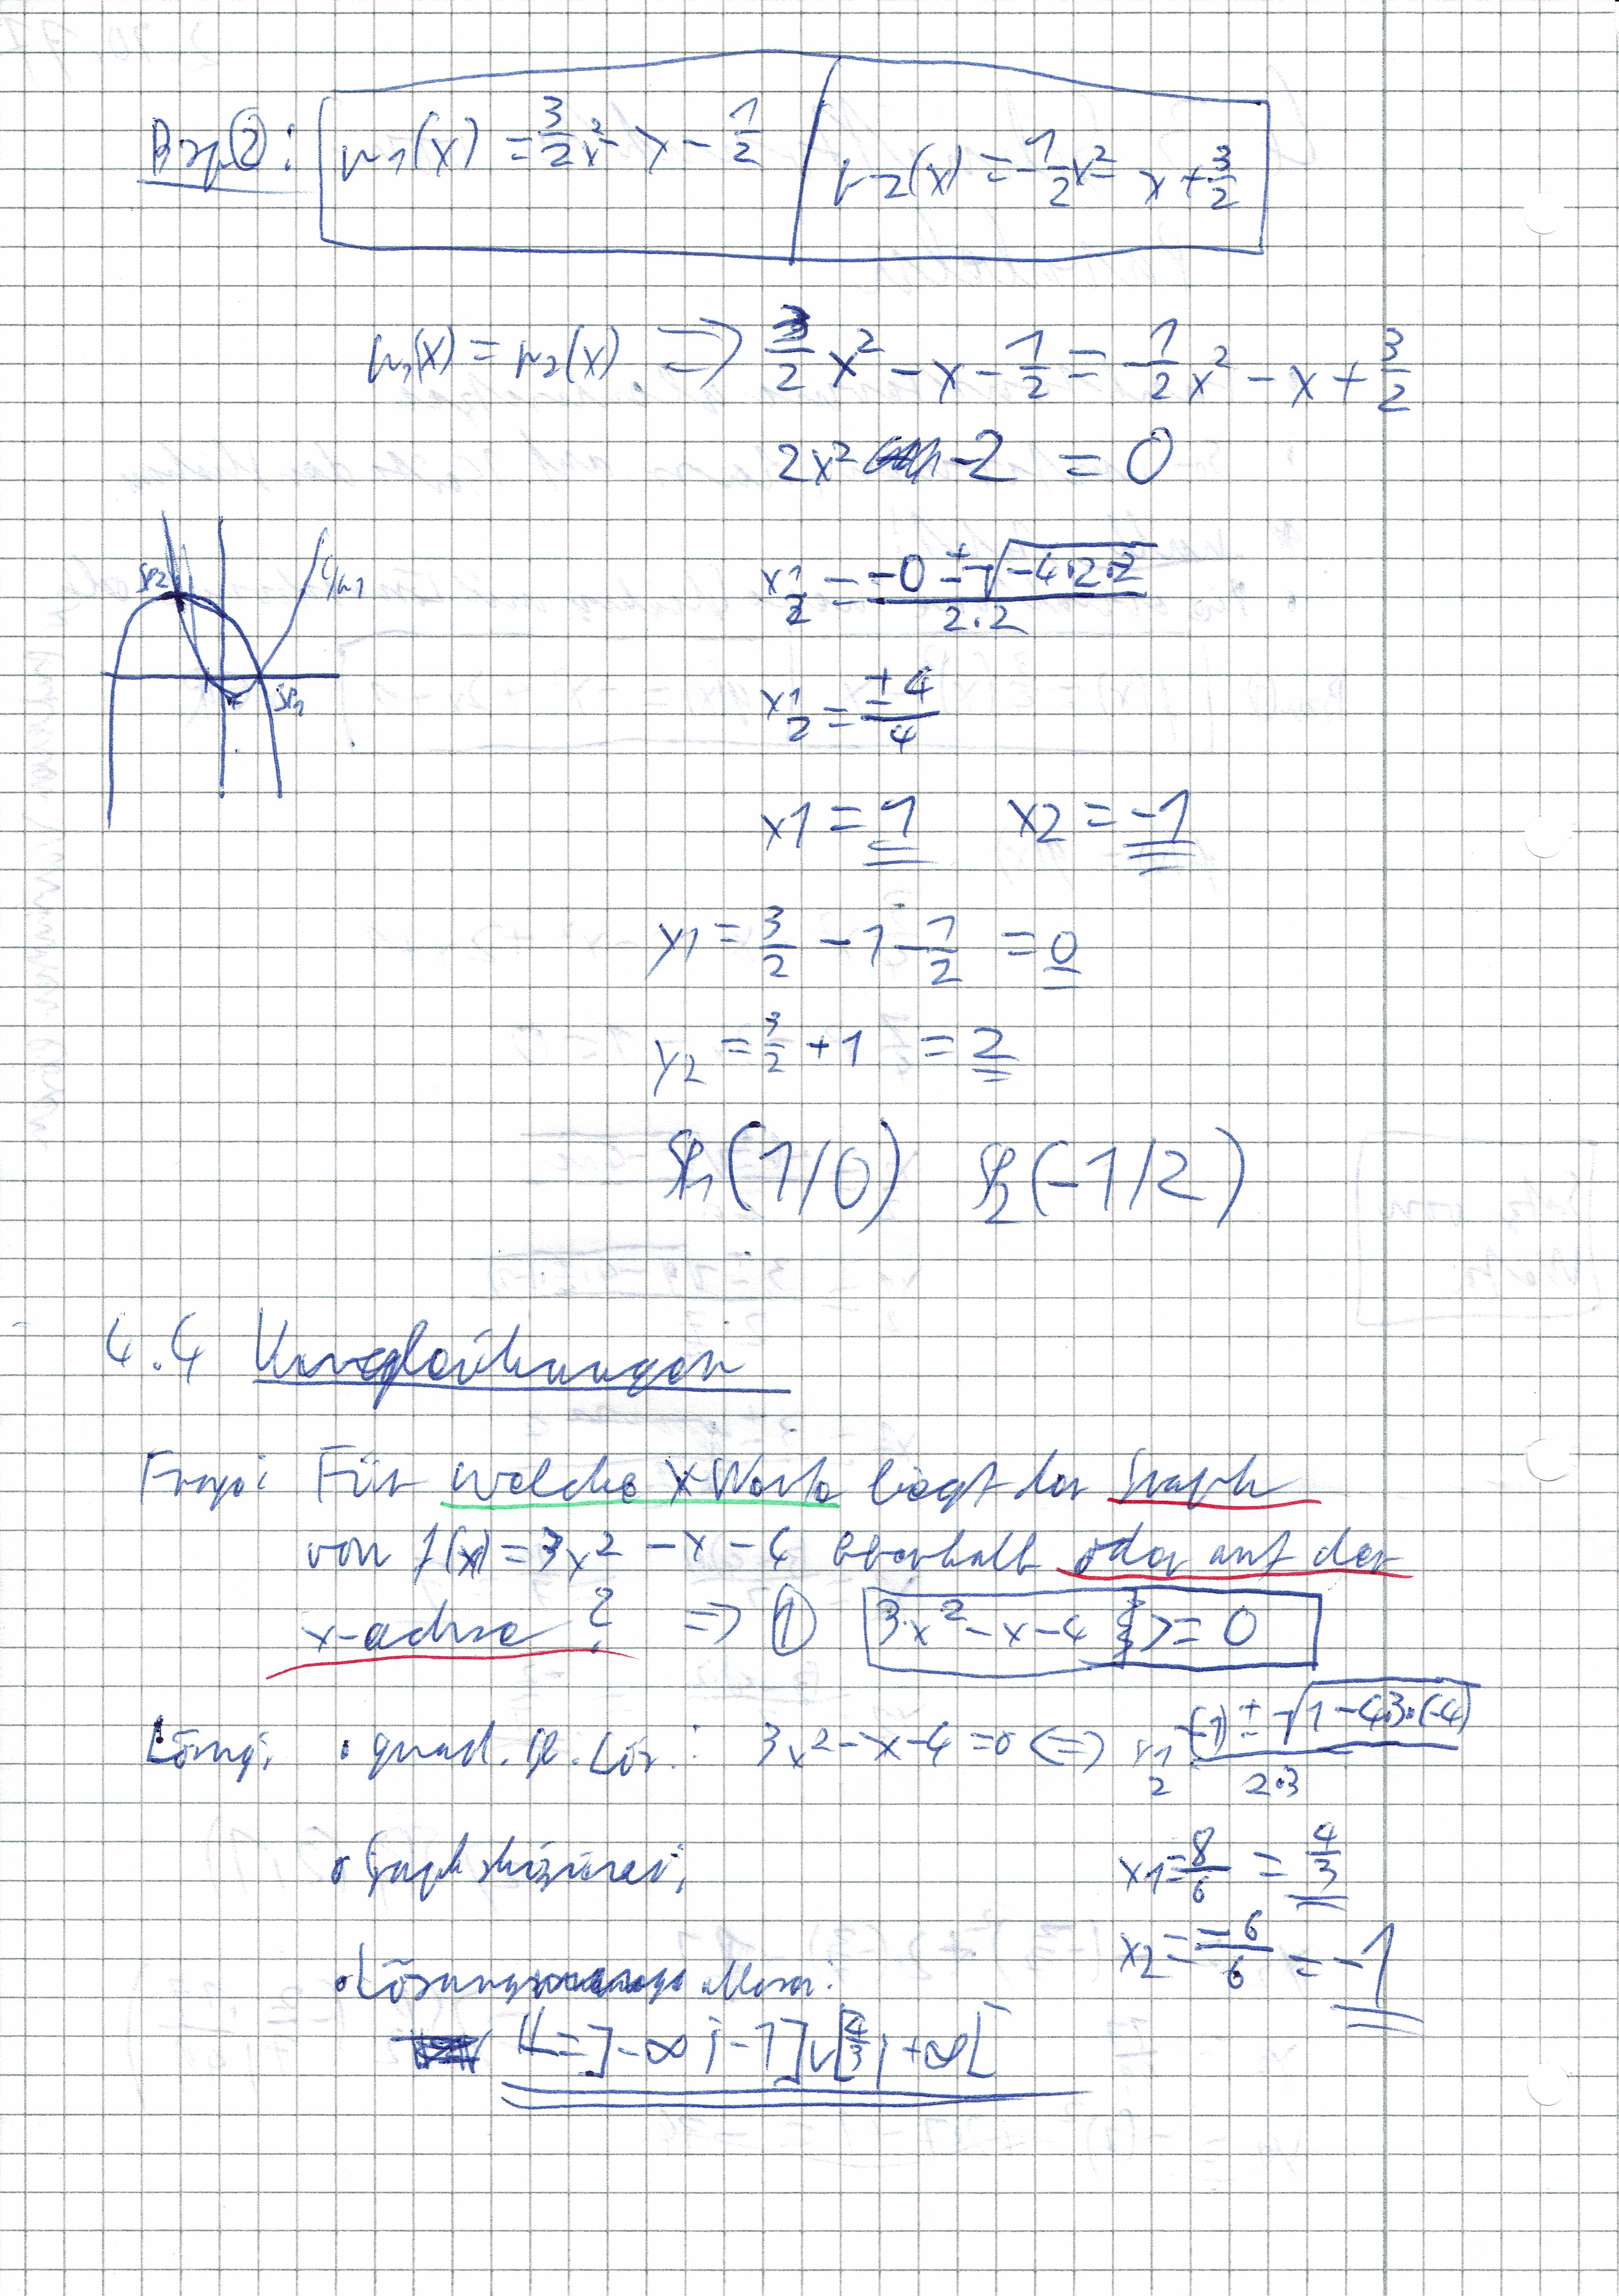 Bsp②: p1(x) = 3/2 x² - x - 1/2 | p2(x) = -1/2 x² - x + 3/2
p1(x) = p2(x) => 3/2 x² - x - 1/2 = -1/2 x² - x + 3/2
2x² -2 = 0
x1/2 = (-0 ± √(-4·2·2)) / (2·2)
SP2
SP1
x1/2 = ±4/4
x1 = 1 x2 = -1
y1 = 3/2 - 1 - 1/2 = 0
y2 = 3/2 + 1 = 2
SP1 (1/0) SP2 (-1/2)
4.4 Ungleichungen
Frage: Für welche x-Werte liegt der Graph
von f(x) = 3x² - x - 4 oberhalb oder auf der
x-achse? => ① 3x² - x - 4 >= 0
Lösung: • quad. gl. Lös.: 3x² - x - 4 = 0 <=> x1/2 = (-(-1) ± √(1 - 4·3·(-4))) / (2·3)
• Graph skizzieren:
x1 = 8/6 = 4/3
x2 = -6/6 = -1
• Lösungsmenge
L = ]-∞; -1] ∪ [4/3; +∞[